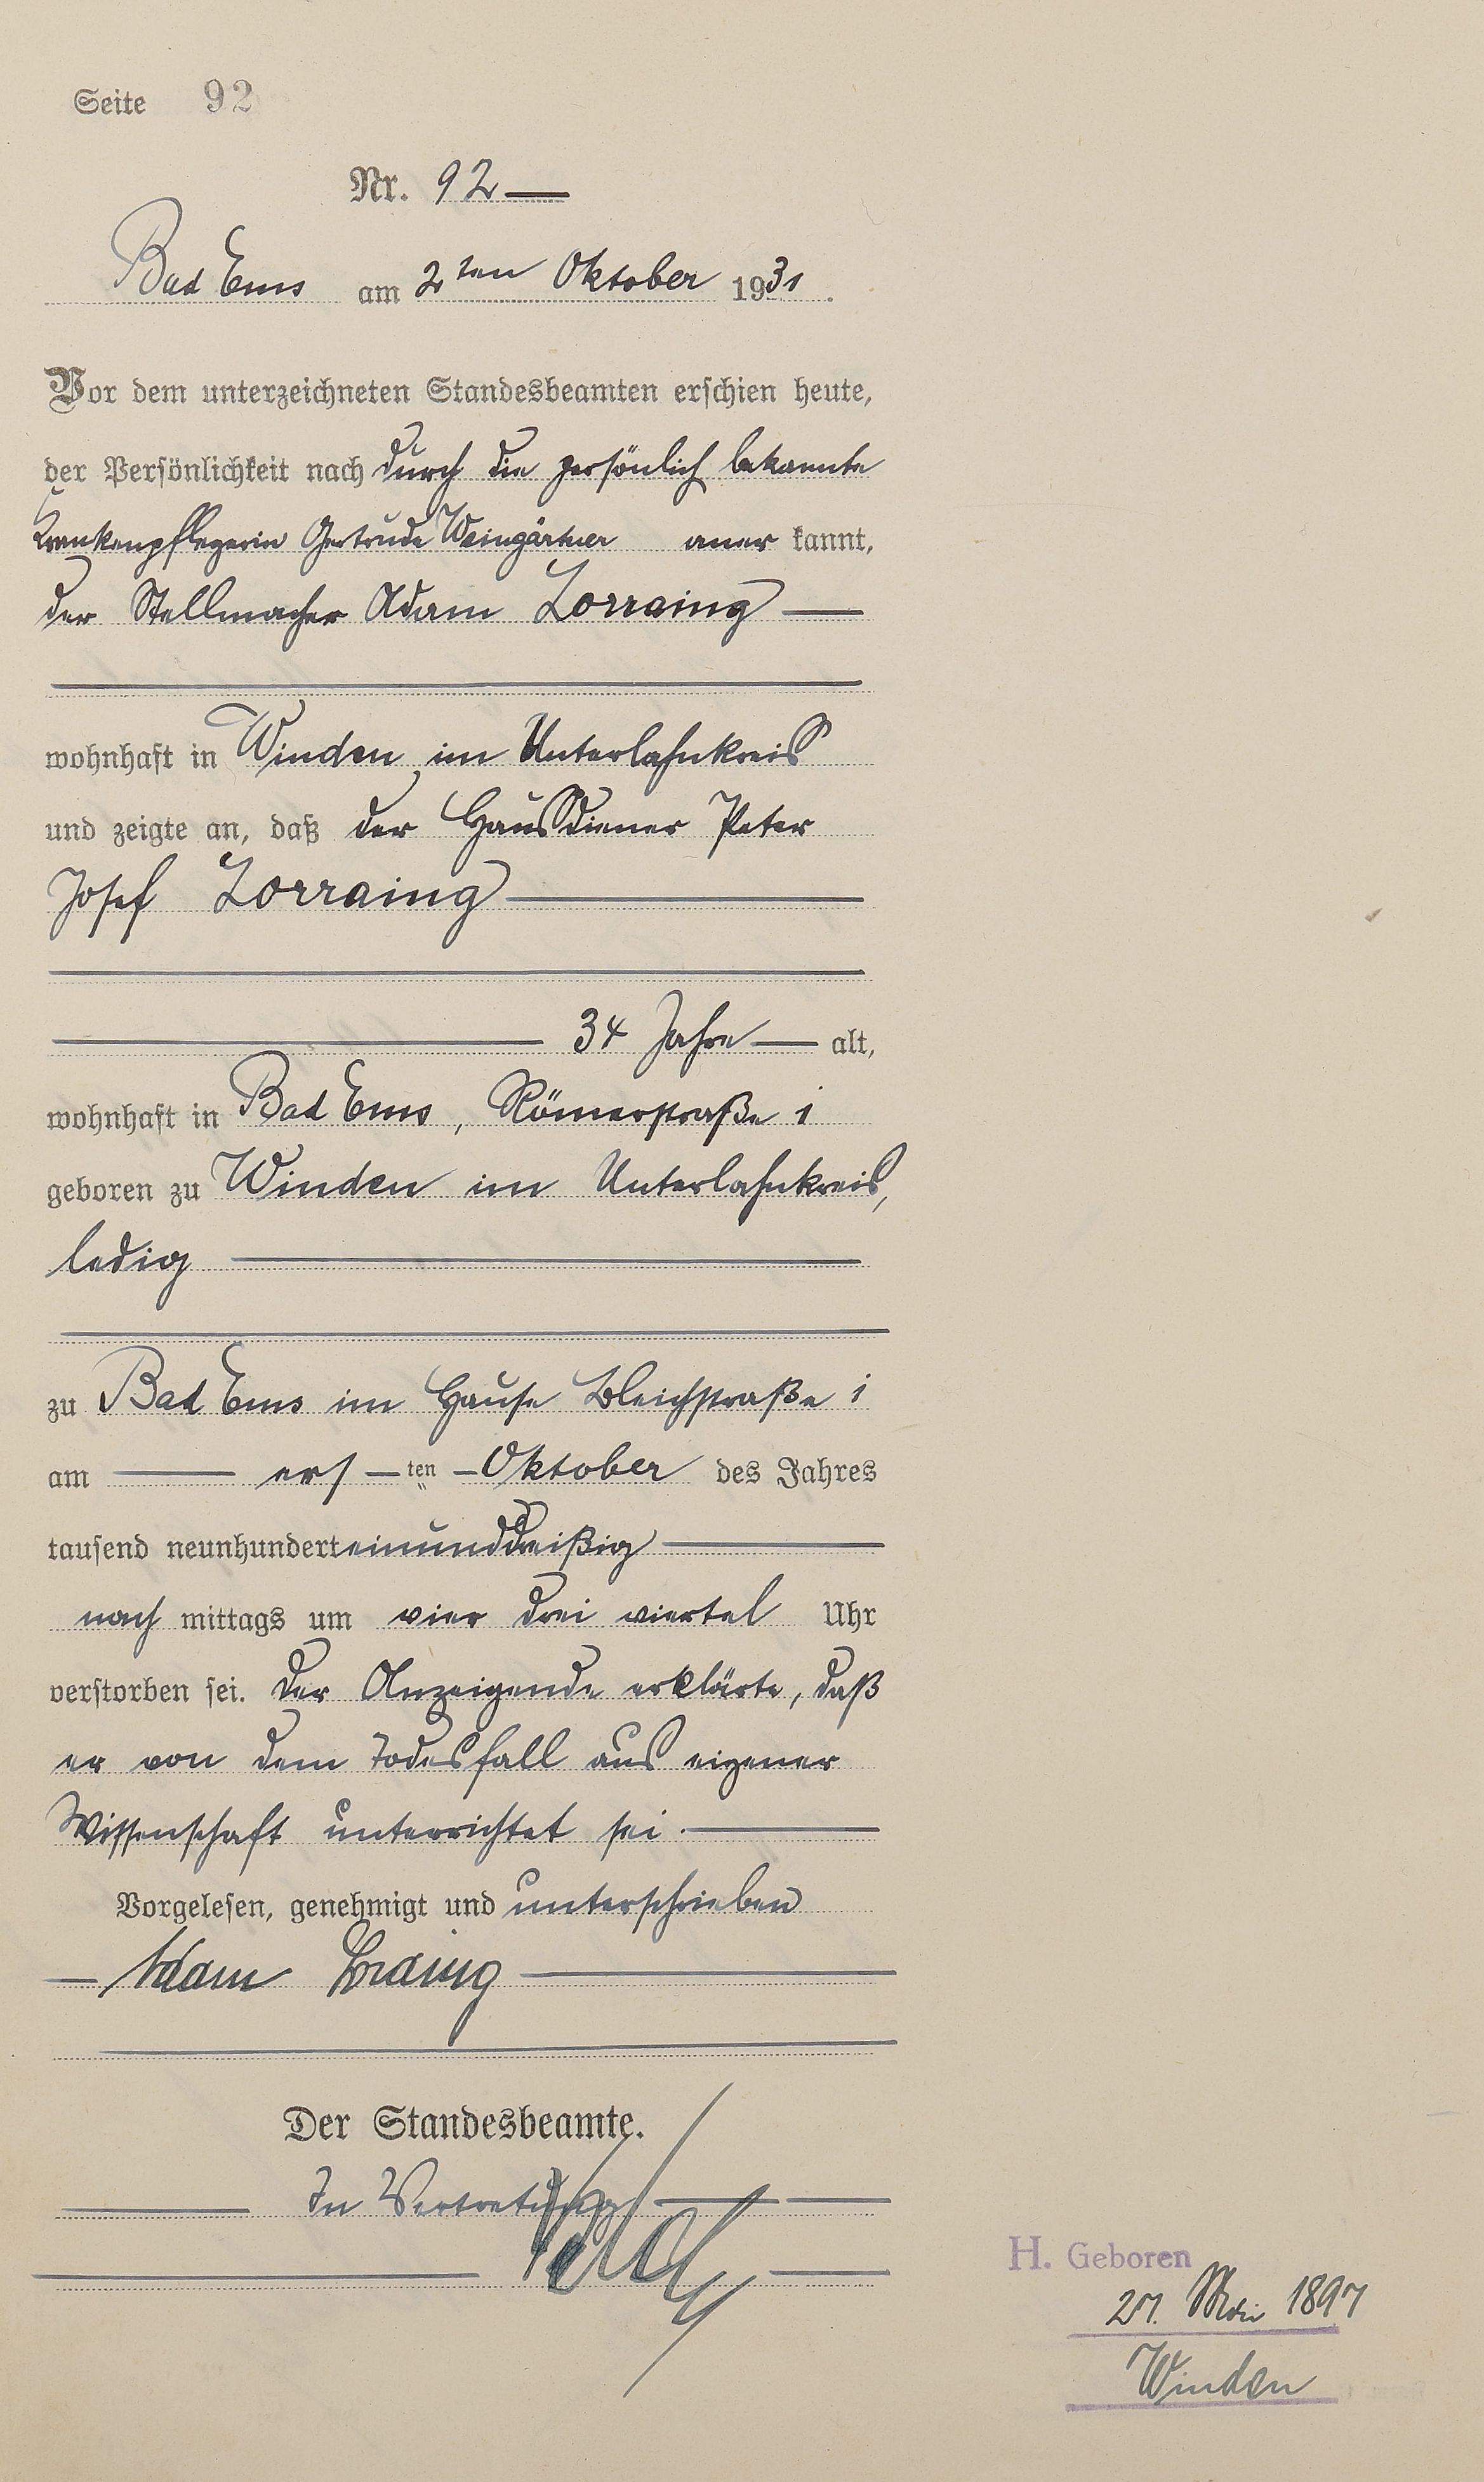 Seite 92
Nr. 92
Bad Ems am 2ten Oktober 1931.
Vor dem unterzeichneten Standesbeamten erschien heute,
der Persönlichkeit nach durch die persönlich bekannte
Krankenpflegerin Gertrude Weingärtner aner kannt,
der Stellmacher Adam Lorraing
wohnhaft in Winden im Unterlahnkreis
und zeigte an, daß der Hausdiener Peter
Josef Lorraing
34 Jahre alt,
wohnhaft in Bad Ems, Römerstraße 1
geboren zu Winden im Unterlahnkreis,
ledig
zu Bad Ems im Hause Bleichstraße 1
am ers ten Oktober des Jahres
tausend neunhundert einunddreißig
nach mittags um vier drei viertel Uhr
verstorben sei. Der Anzeigende erklärte, daß
er von dem Todesfall aus eigener
Wissenschaft unterrichtet sei.
Vorgelesen, genehmigt und unterschrieben
Adam Lorraing
Der Standesbeamte.
In Vertretung
H. Geboren
27. Mai 1897
Winden